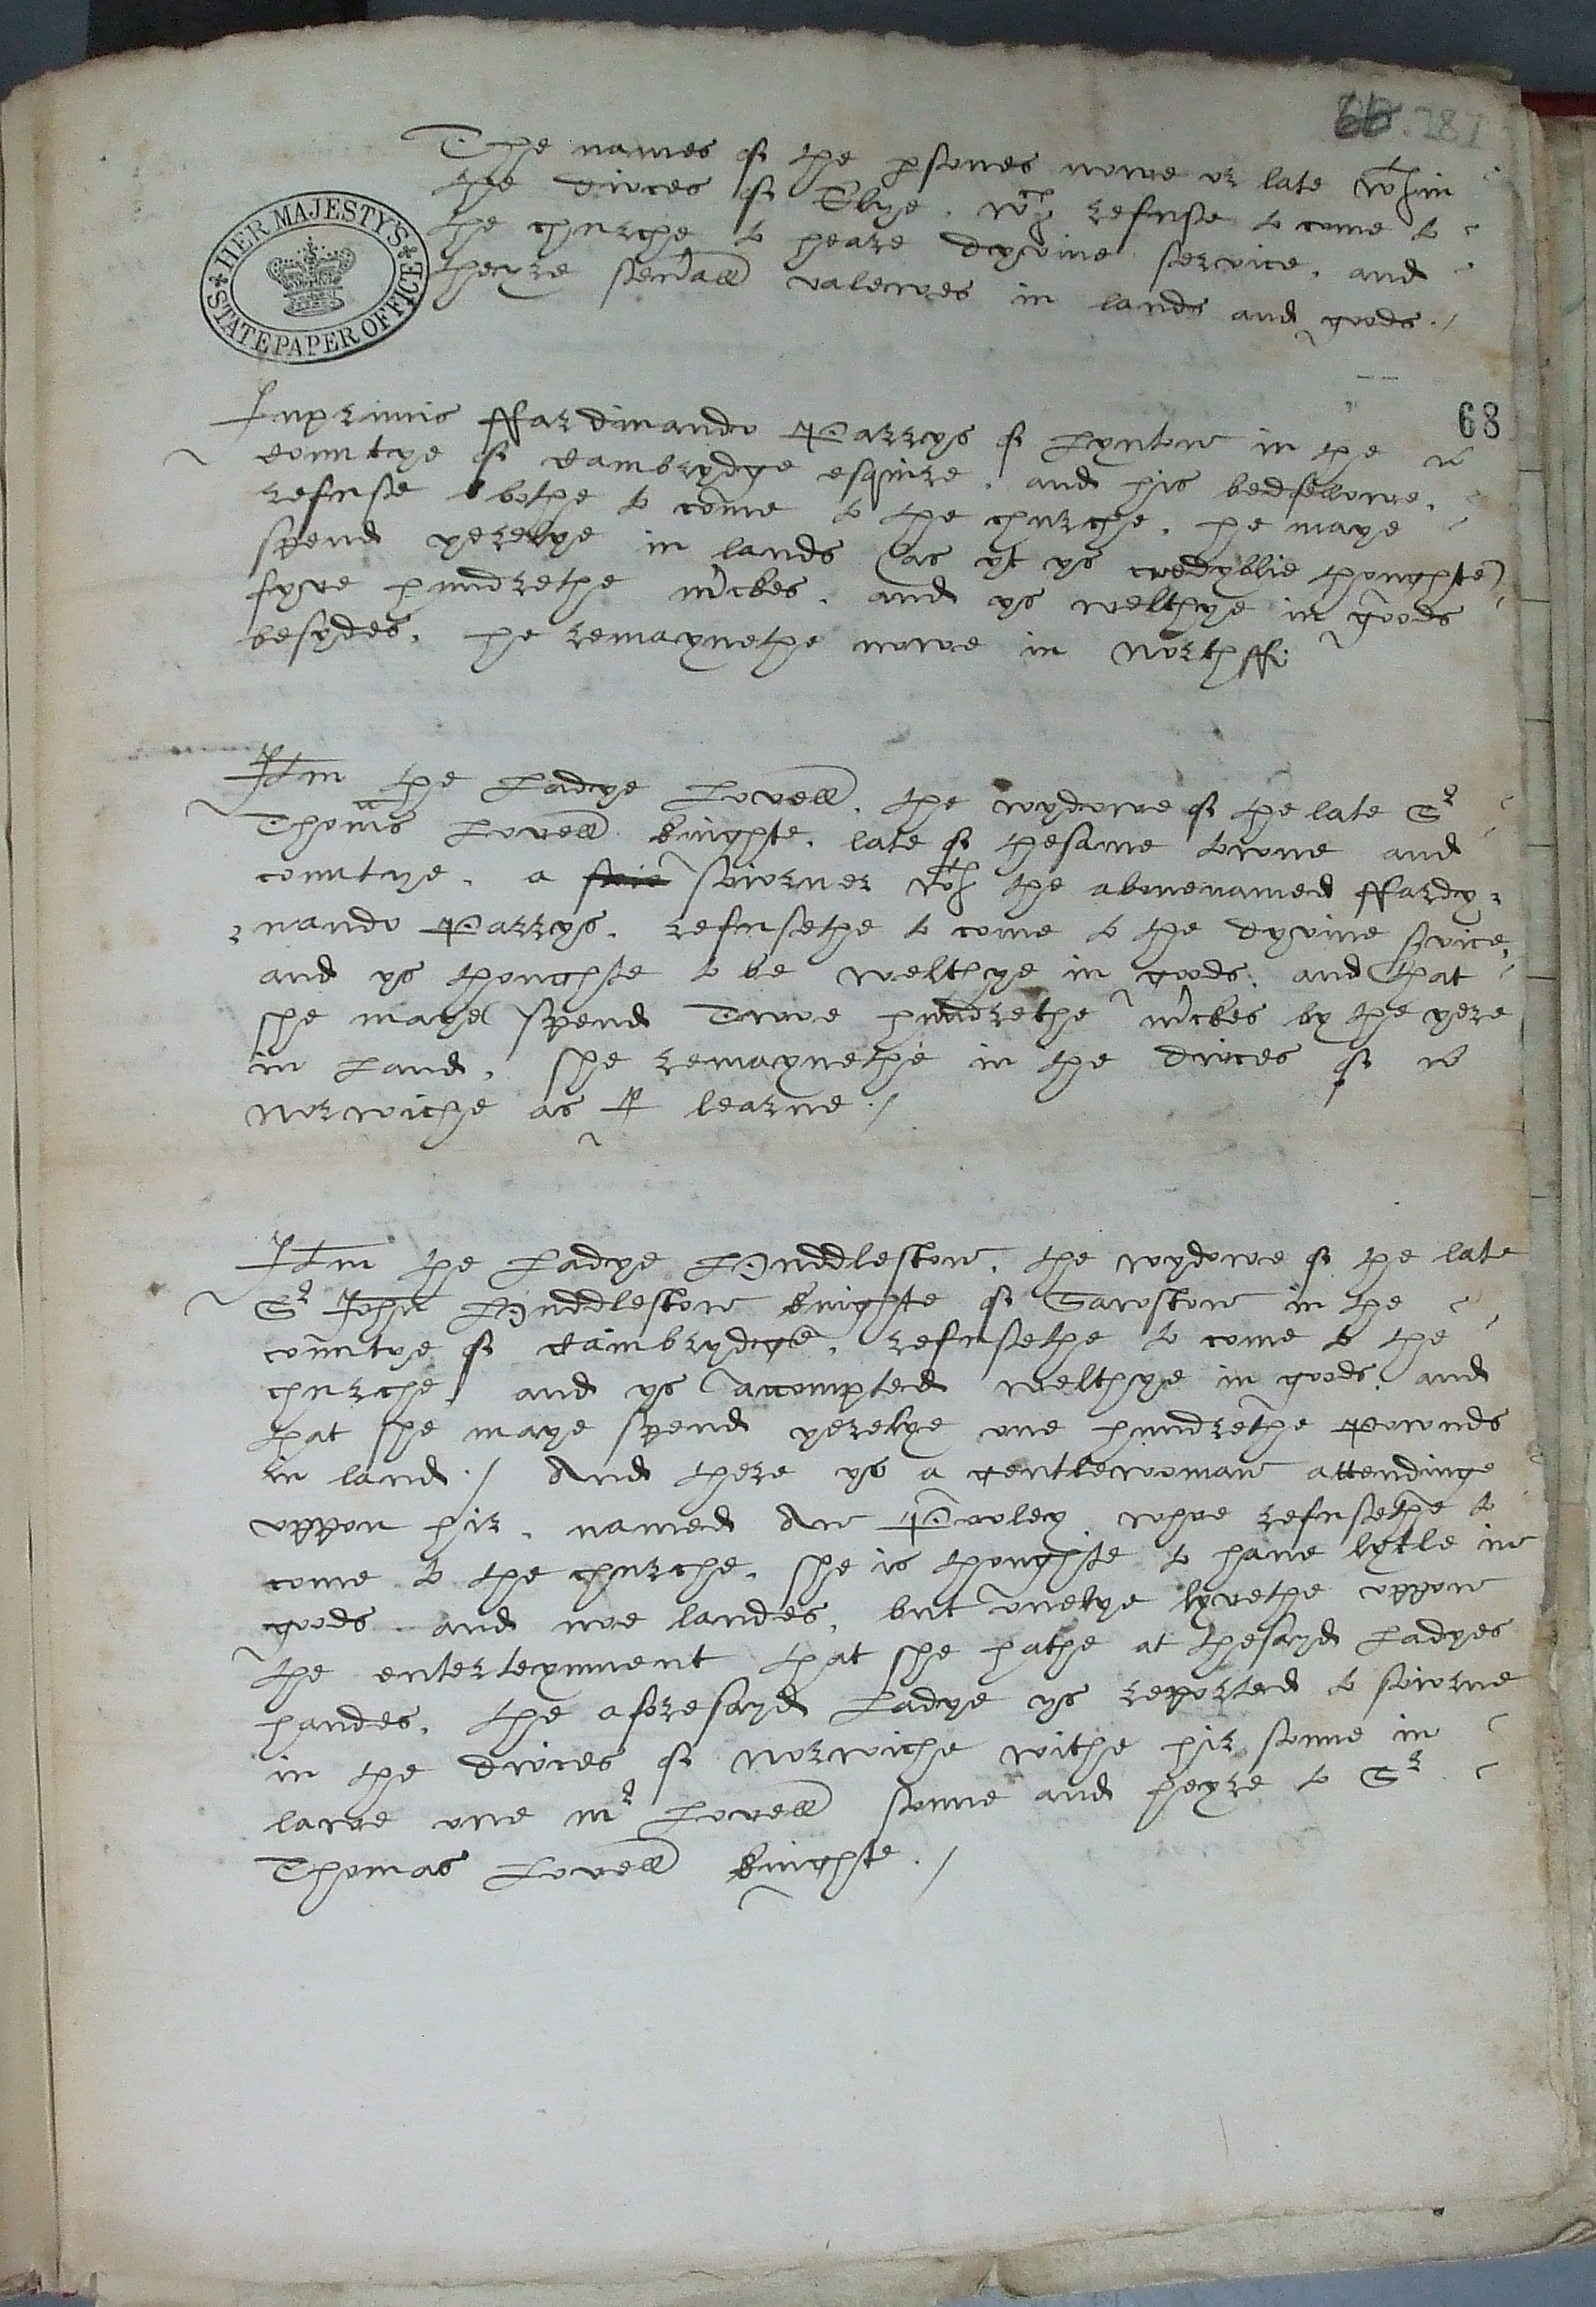 66. 281
The names of the psones nowe or late wthin
the dioces of Elye. wch refuse to come to
the churche to heare dyvine service. and
theyre sevall valewes in lands and goods./
HER MAJESTY'S STATE PAPER OFFICE
68
Inprimis Ffardinando Parrys of Lynton in the
countye of Cambrydge esquire. and his bedfellowe.
refuse bothe to come to the churche. he maye
spend yerelye in lands (as yt ys credyblie thoughte)
fyve hundrethe mrkes. and ys welthye in goods
besydes. he remaynethe nowe in Northff:
Itm the Ladye Lovell. the wydowe of the late Sr
Thoms Lovell knighte. late of thesame towne and
countye. a soiorner wth the abovenamed Ffardy=
=nando Parrys. refusethe to come to the dyvine svice.
and ys thoughte to be welthye in goods. and that
she maye spend Twoe hundrethe mrkes by the yere
in Land. she remaynethe in the dioces of
Norwiche as I learne./
Itm the Ladye Huddleston. the wydowe of the late
Sr John Huddleston knighte of Sawston in the
countye of Cambrydge. refusethe to come to the
churche. and ys accompted welthye in goods. and
that she maye spend yerelye one hundrethe Pownds
in land./ And there ys a gentlewoman attendinge
uppon hir. named An Pooley. whoe refusethe to
come to the churche. she is thoughte to have lytle in
goods and noe landes. but onelye lyvethe uppon
the enterteynment that she hathe at thesayd Ladyes
handes. the aforesayd Ladye ys reported to soiorne
in the dioces of Norwiche withe hir sonne in
lawe one mr Lovell sonne and heyre to Sr
Thomas Lovell knighte./